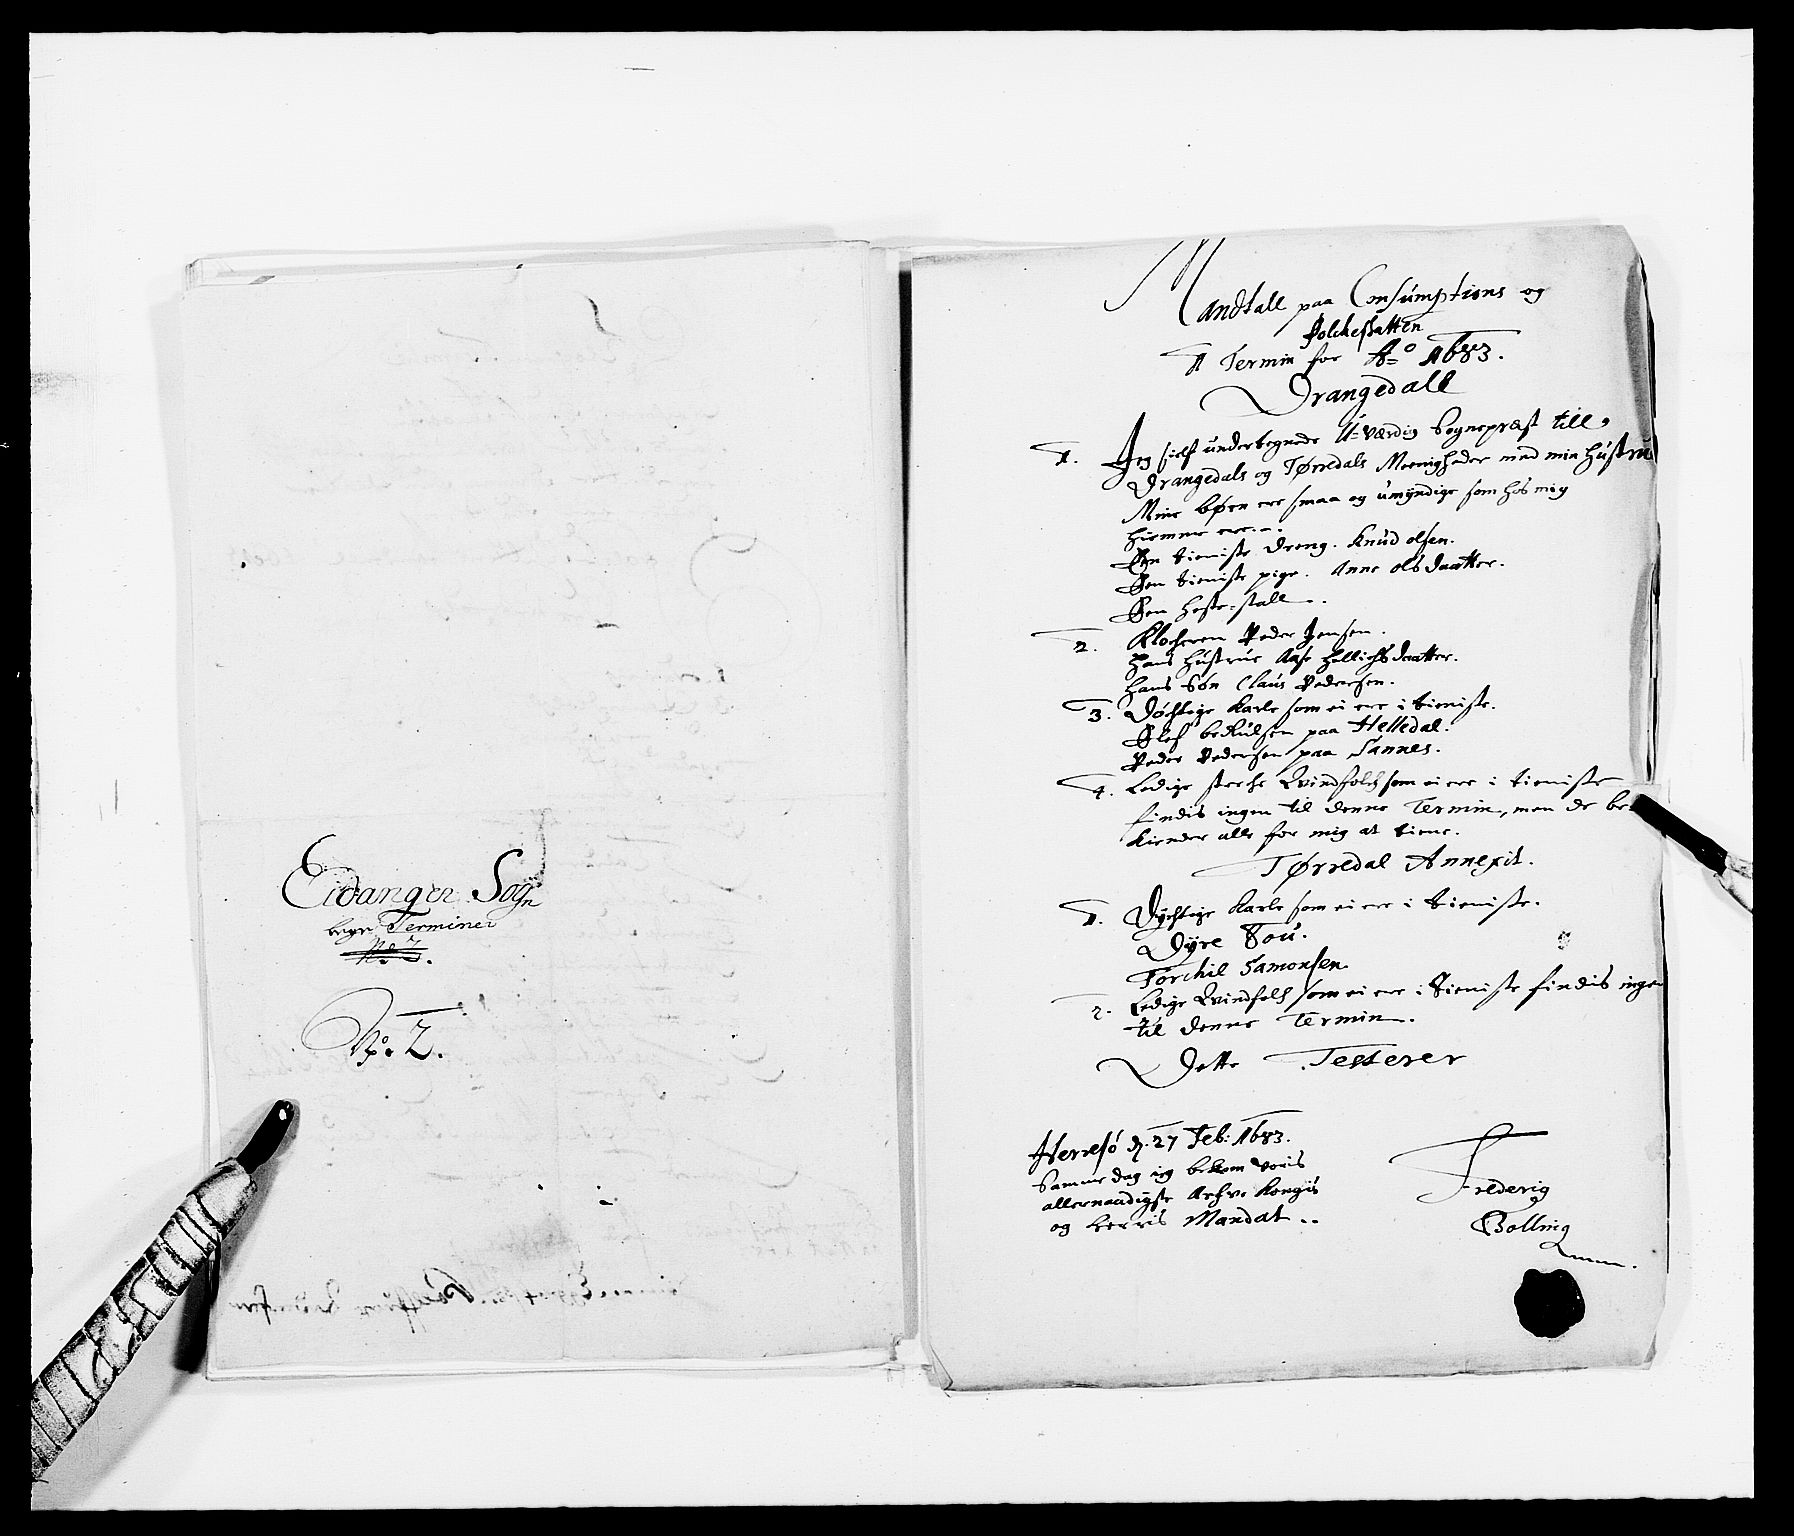 Eidanger Sogn
begge Terminer
No 2.
No. 2.
Mandtall paa Consumptions og
Folcheskatten
1 Termin for Ao 1683.
Drangedall
1. Jeg sielf undertegnede U-værdig Sognepræst till
Drangedals og Tørredals Meenigheder med min Hustru
Mine børn ere smaa og umyndige som hos mig
hiemme ere.
En tieniste dreng. Knud olsen.
Een tieniste pige. Anne olsdaatter.
Een heste-stall.
2. Klocheren Peder Jensen.
Hans Hustrue Aase hellichsdaatter.
Hans Søn Claus Pedersen.
3. Døchtige Karle som ei ere i tieniste.
Olef paa Helledal.
Peder Pedersen paa Sannes.
4. Ledige sterche Qvindfolch som ei ere i tieniste
findis ingen til denne Termin, men de be
kiender alle for mig at tiene.
Tørredal Annexit.
1. Dychtige Karle som ei ere i tieniste.
Dyre Bou.
Torchil Samonsen
2. Ledige Qvindfolch som ei ere i Tieniste findis ingen
til denne Termin.
Dette Testerer
Herresø d. 27 Feb: 1683.
Samme dag ieg bekom voris
allernaadigste Arfve Kongis
og herris Mandat..
Frederig
Bolling